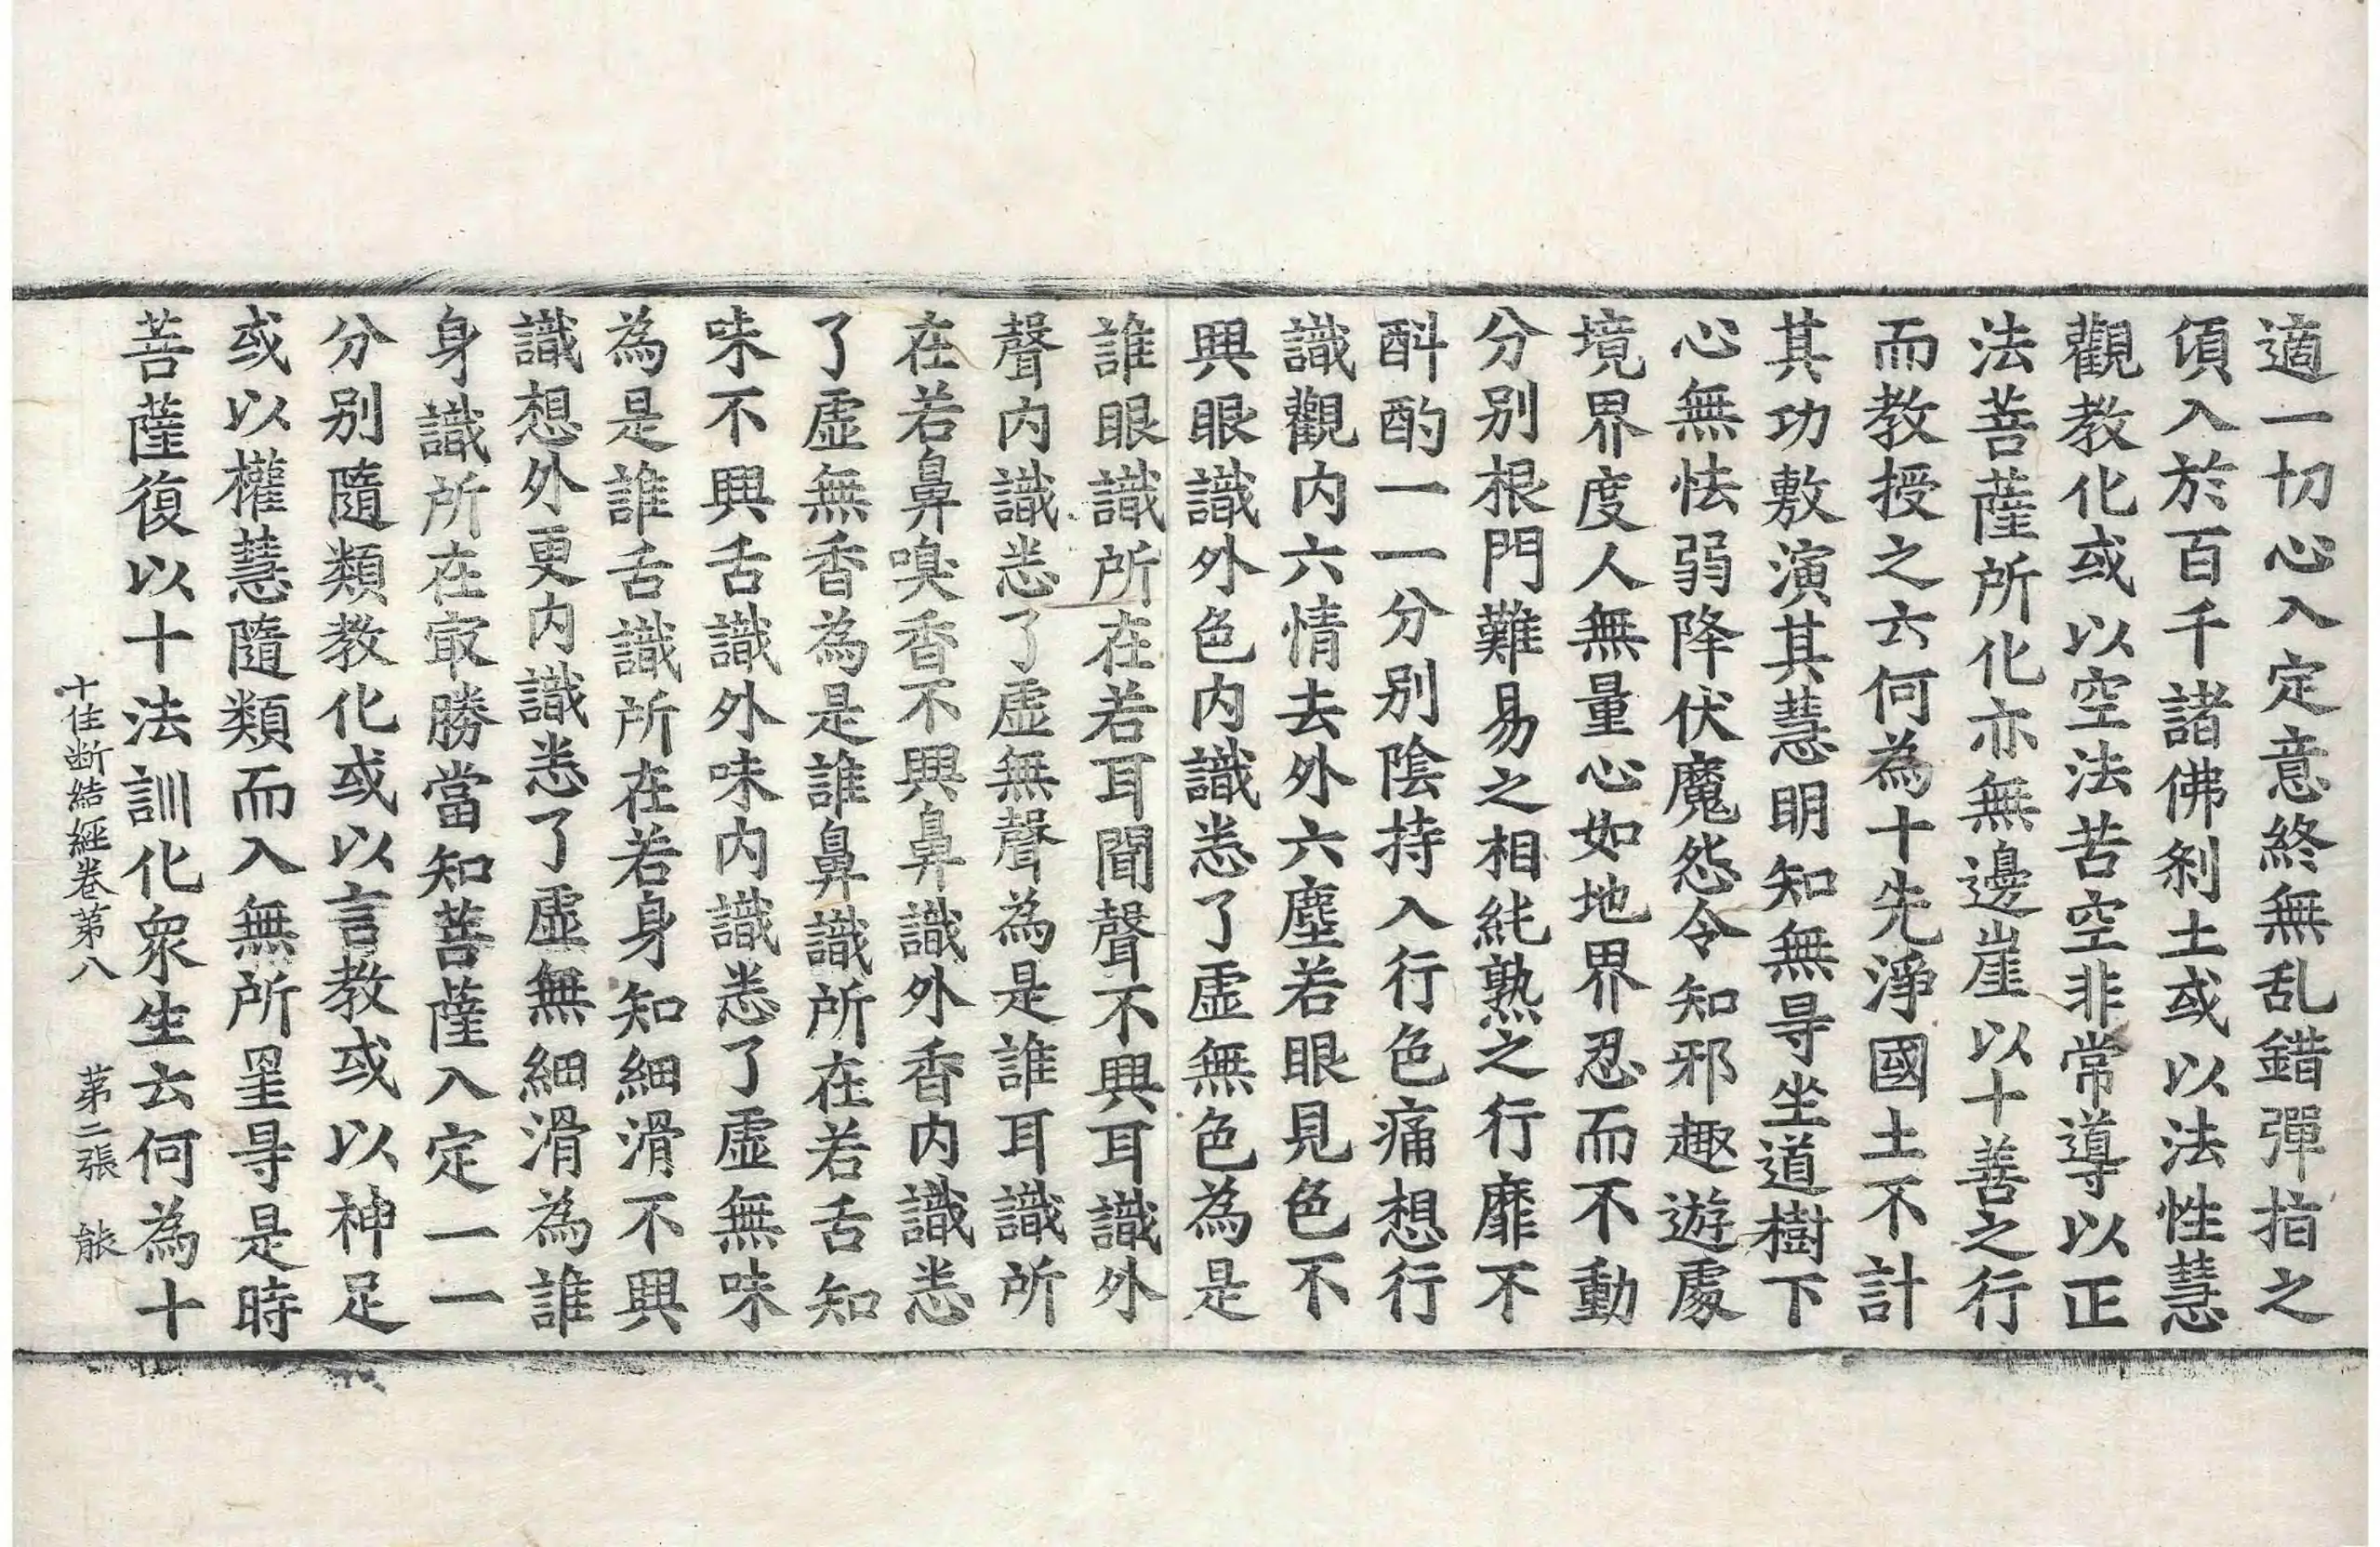 適一切心入定意終無乱錯彈指之
傾入於百千諸佛刹土或以法性慧
觀教化或以空法苦空非常導以正
法菩薩所化亦無邊崖以十善之行
而教授之云何為十先淨國土不計
其功敷演其慧明知無㝵坐道樹下
心無怯弱降伏魔怨令知邪趣遊處
境界度人無量心如地界忍而不動
分別根門難易之相純熟之行靡不
斟酌一一分別陰持入行色痛想行
識觀內六情去外六塵若眼見色不
興眼識外色內識悉了虛無色為是
誰眼識所在若耳聞聲不興耳識外
聲內識悉了虛無聲為是誰耳識所
在若鼻嗅香不興鼻識外香內識悉
了虛無香為是誰鼻識所在若舌知
味不興舌識外味內識悉了虛無味
為是誰舌識所在若身知細滑不興
識想外更內識悉了虛無細滑為誰
身識所在㝡勝當知菩薩入定一一
分別隨類教化或以言教或以神足
或以權慧隨類而入無所罣㝵是時
菩薩復以十法訓化眾生云何為十
十住断結經卷第八 第二張 能